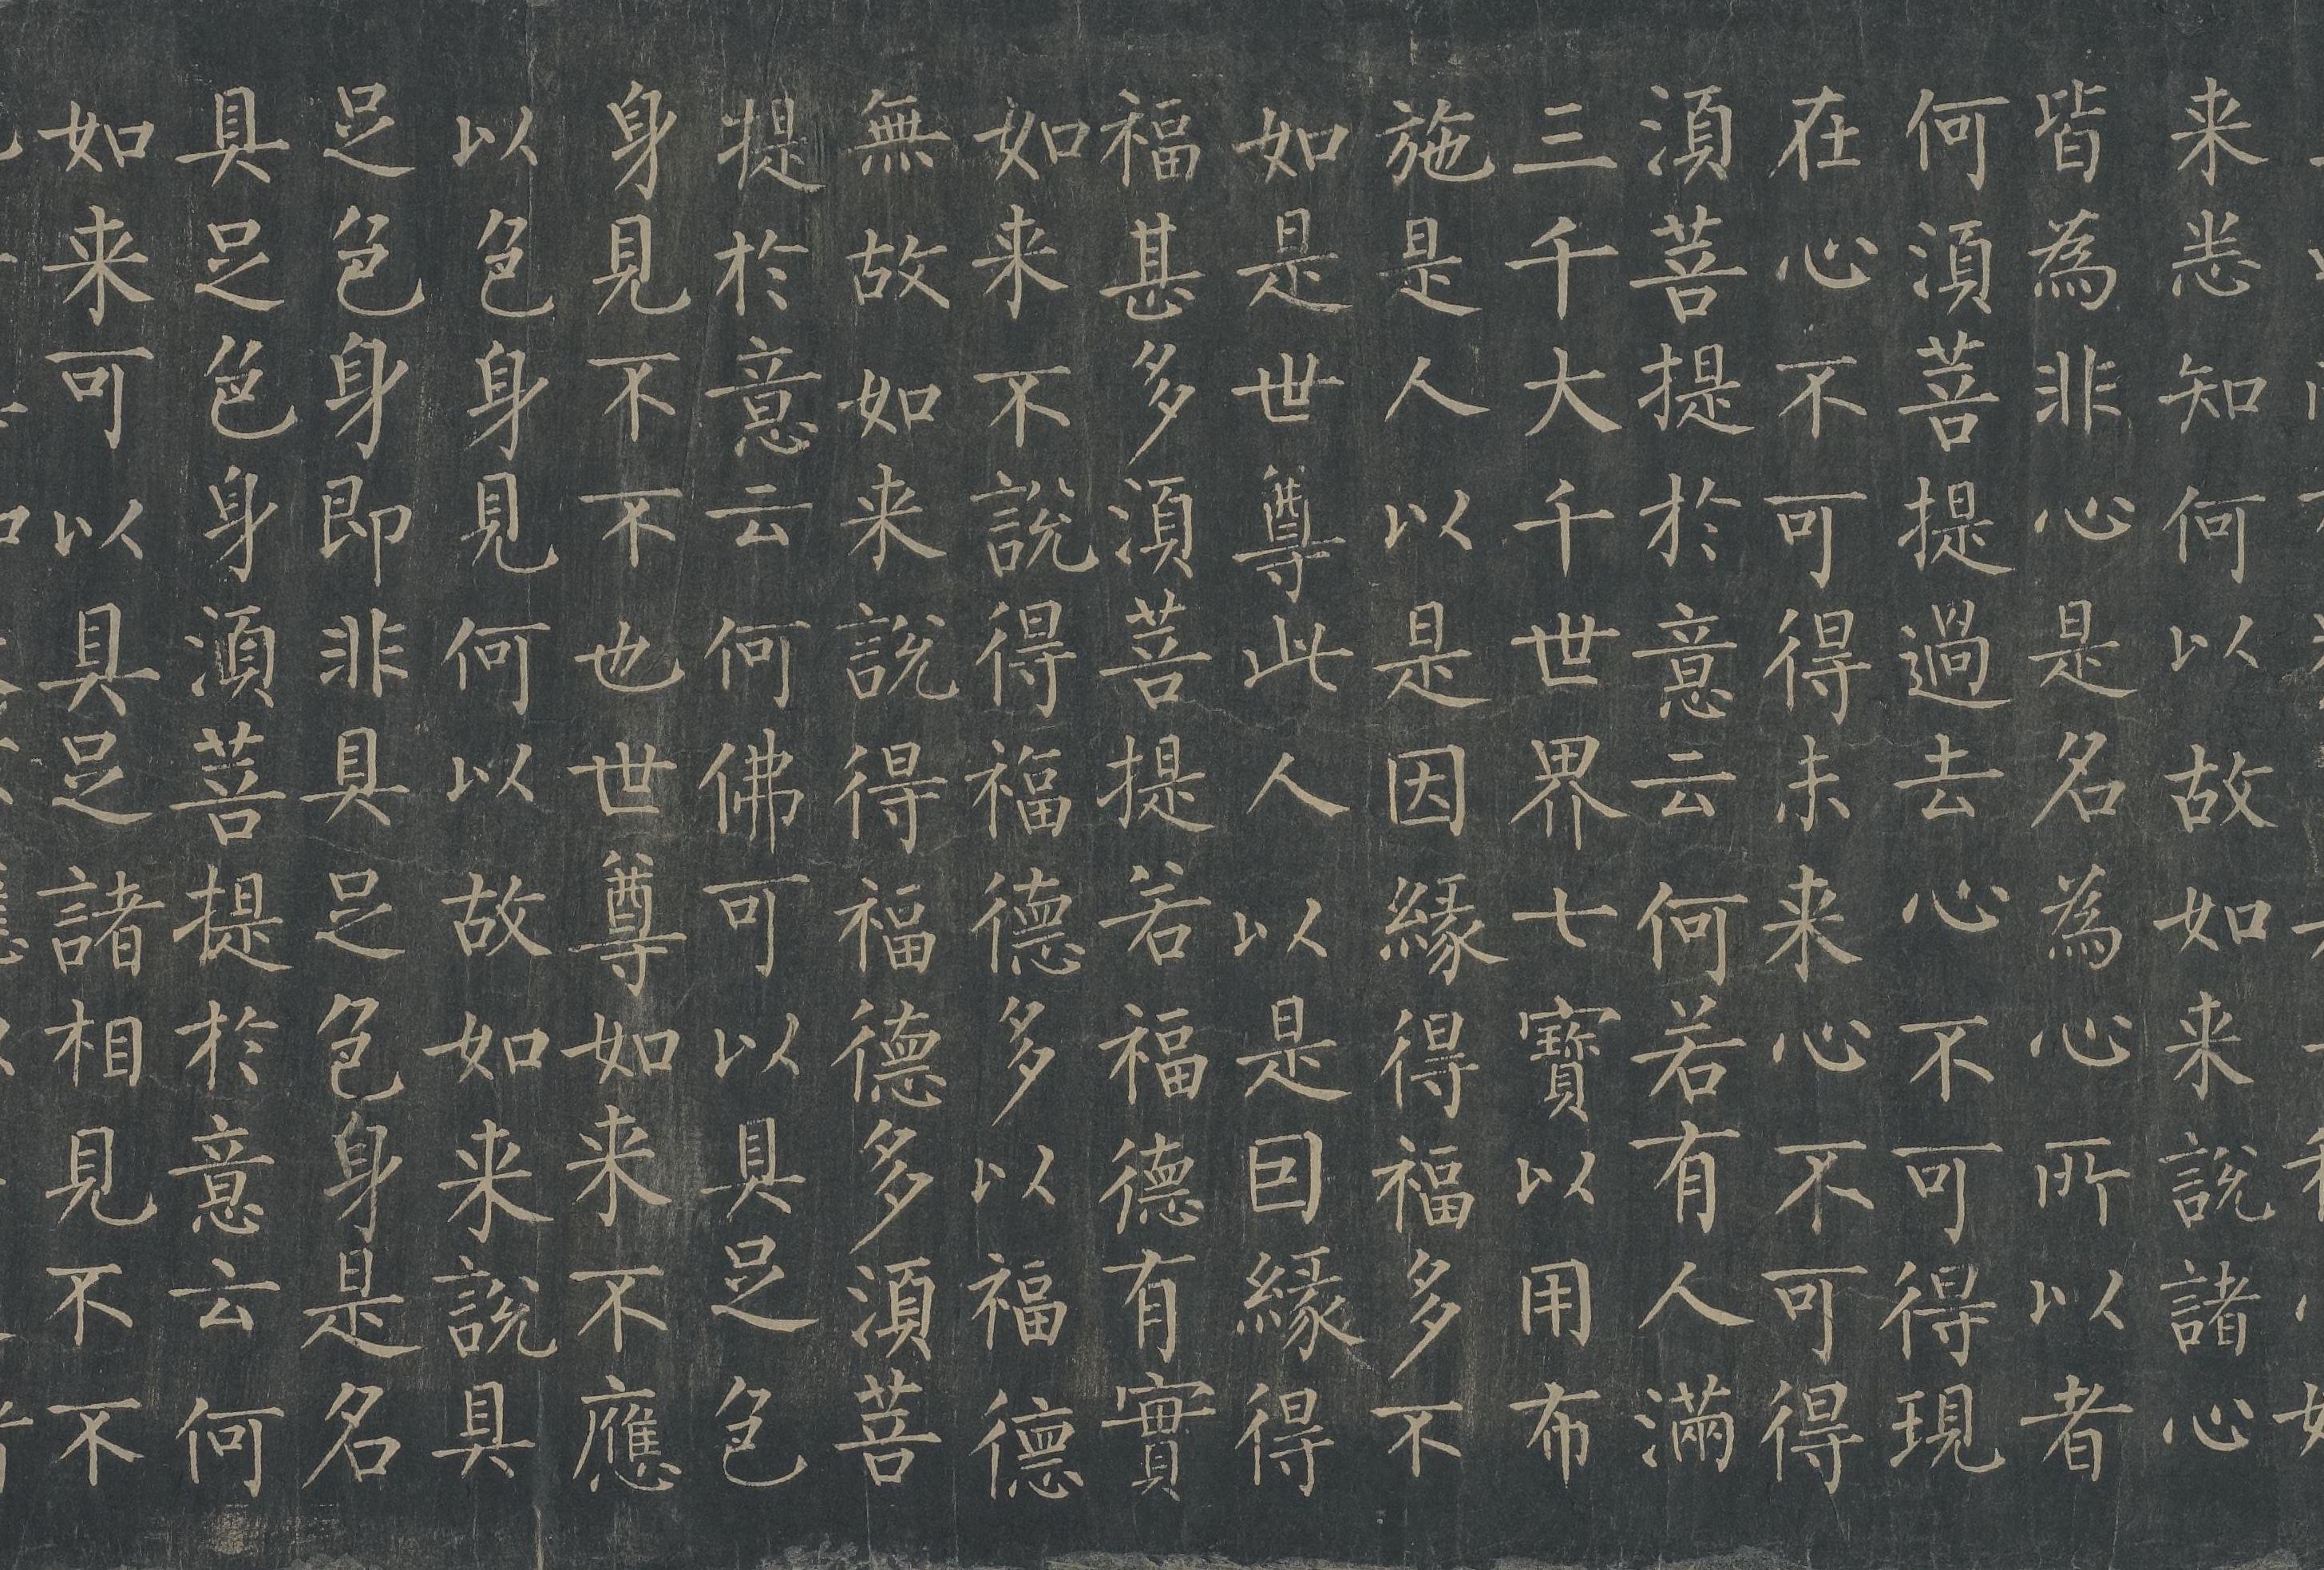 来悉知何以故如来說諸心
皆為非心是名為心所以者
何須菩提過去心不可得現
在心不可得未来心不可得
須菩提於意云何若有人滿
三千大千世界七寶以用布
施是人以是因緣得福多不
如是世尊此人以是因緣得
福甚多須菩提若福德有實
如来不說得福德多以福德
無故如来說得福德多須菩
提於意云何佛可以具足色
身見不不也世尊如来不應
以色身見何以故如来說具
足色身即非具足色身是名
具足色身須菩提於意云何
如来可以具足諸相見不不